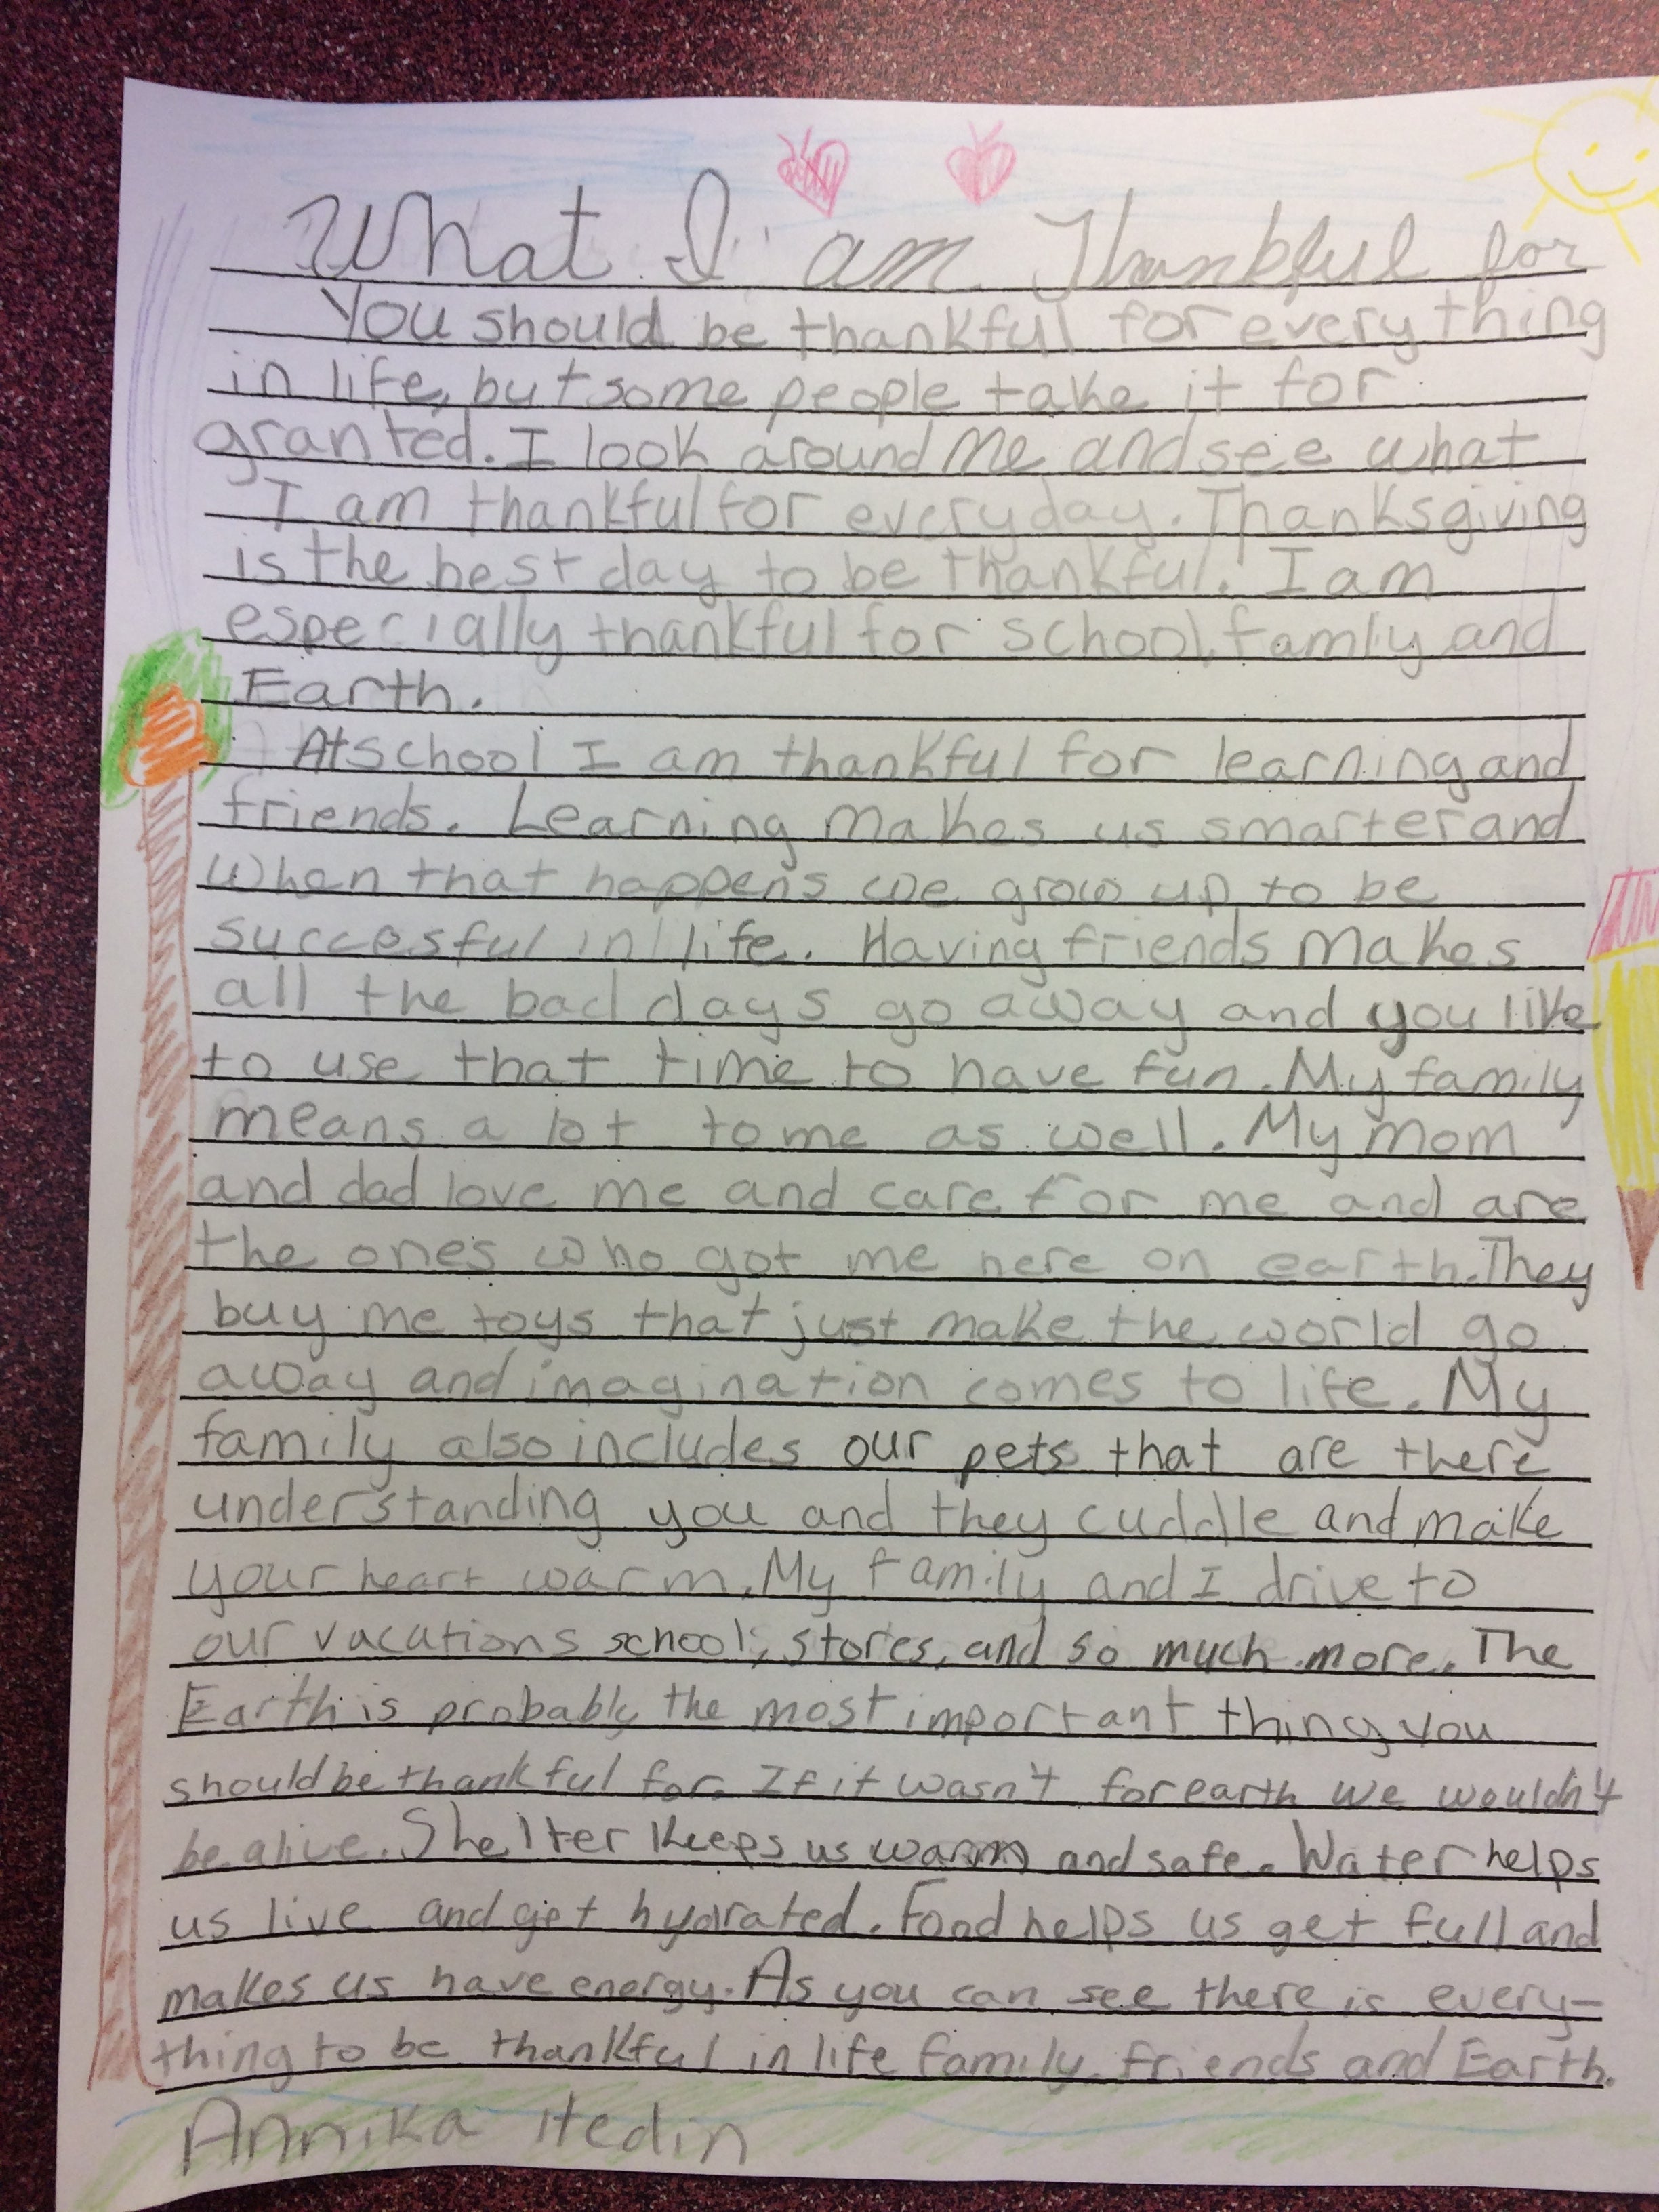 What I am Thankful for
You should be thankful for everything
in life, but some people take it for
granted. I look around me and see what
I am thankful for everyday. Thanksgiving
is the best day to be thankful. I am
especially thankful for school, famliy and
Earth.
At school I am thankful for learning and
friends. Learning makes us smarter and
when that happens we grow up to be
succesful in life. Having friends makes
all the bad days go away and you like
to use that time to have fun. My family
means a lot to me as well. My mom
and dad love me and care for me and are
the ones who got me here on earth. They
buy me toys that just make the world go
away and imagination comes to life. My
family also includes our pets that are there
understanding you and they cuddle and make
your heart warm. My family and I drive to
our vacations school, stores, and so much more. The
Earth is probably the most important thing you
should be thankful for. If it wasn't for earth we wouldn't
be alive. Shelter keeps us warm and safe. Water helps
us live and get hydrated. Food helps us get full and
makes us have energy. As you can see there is every-
thing to be thankful in life family, friends and Earth.
Annika Hedin